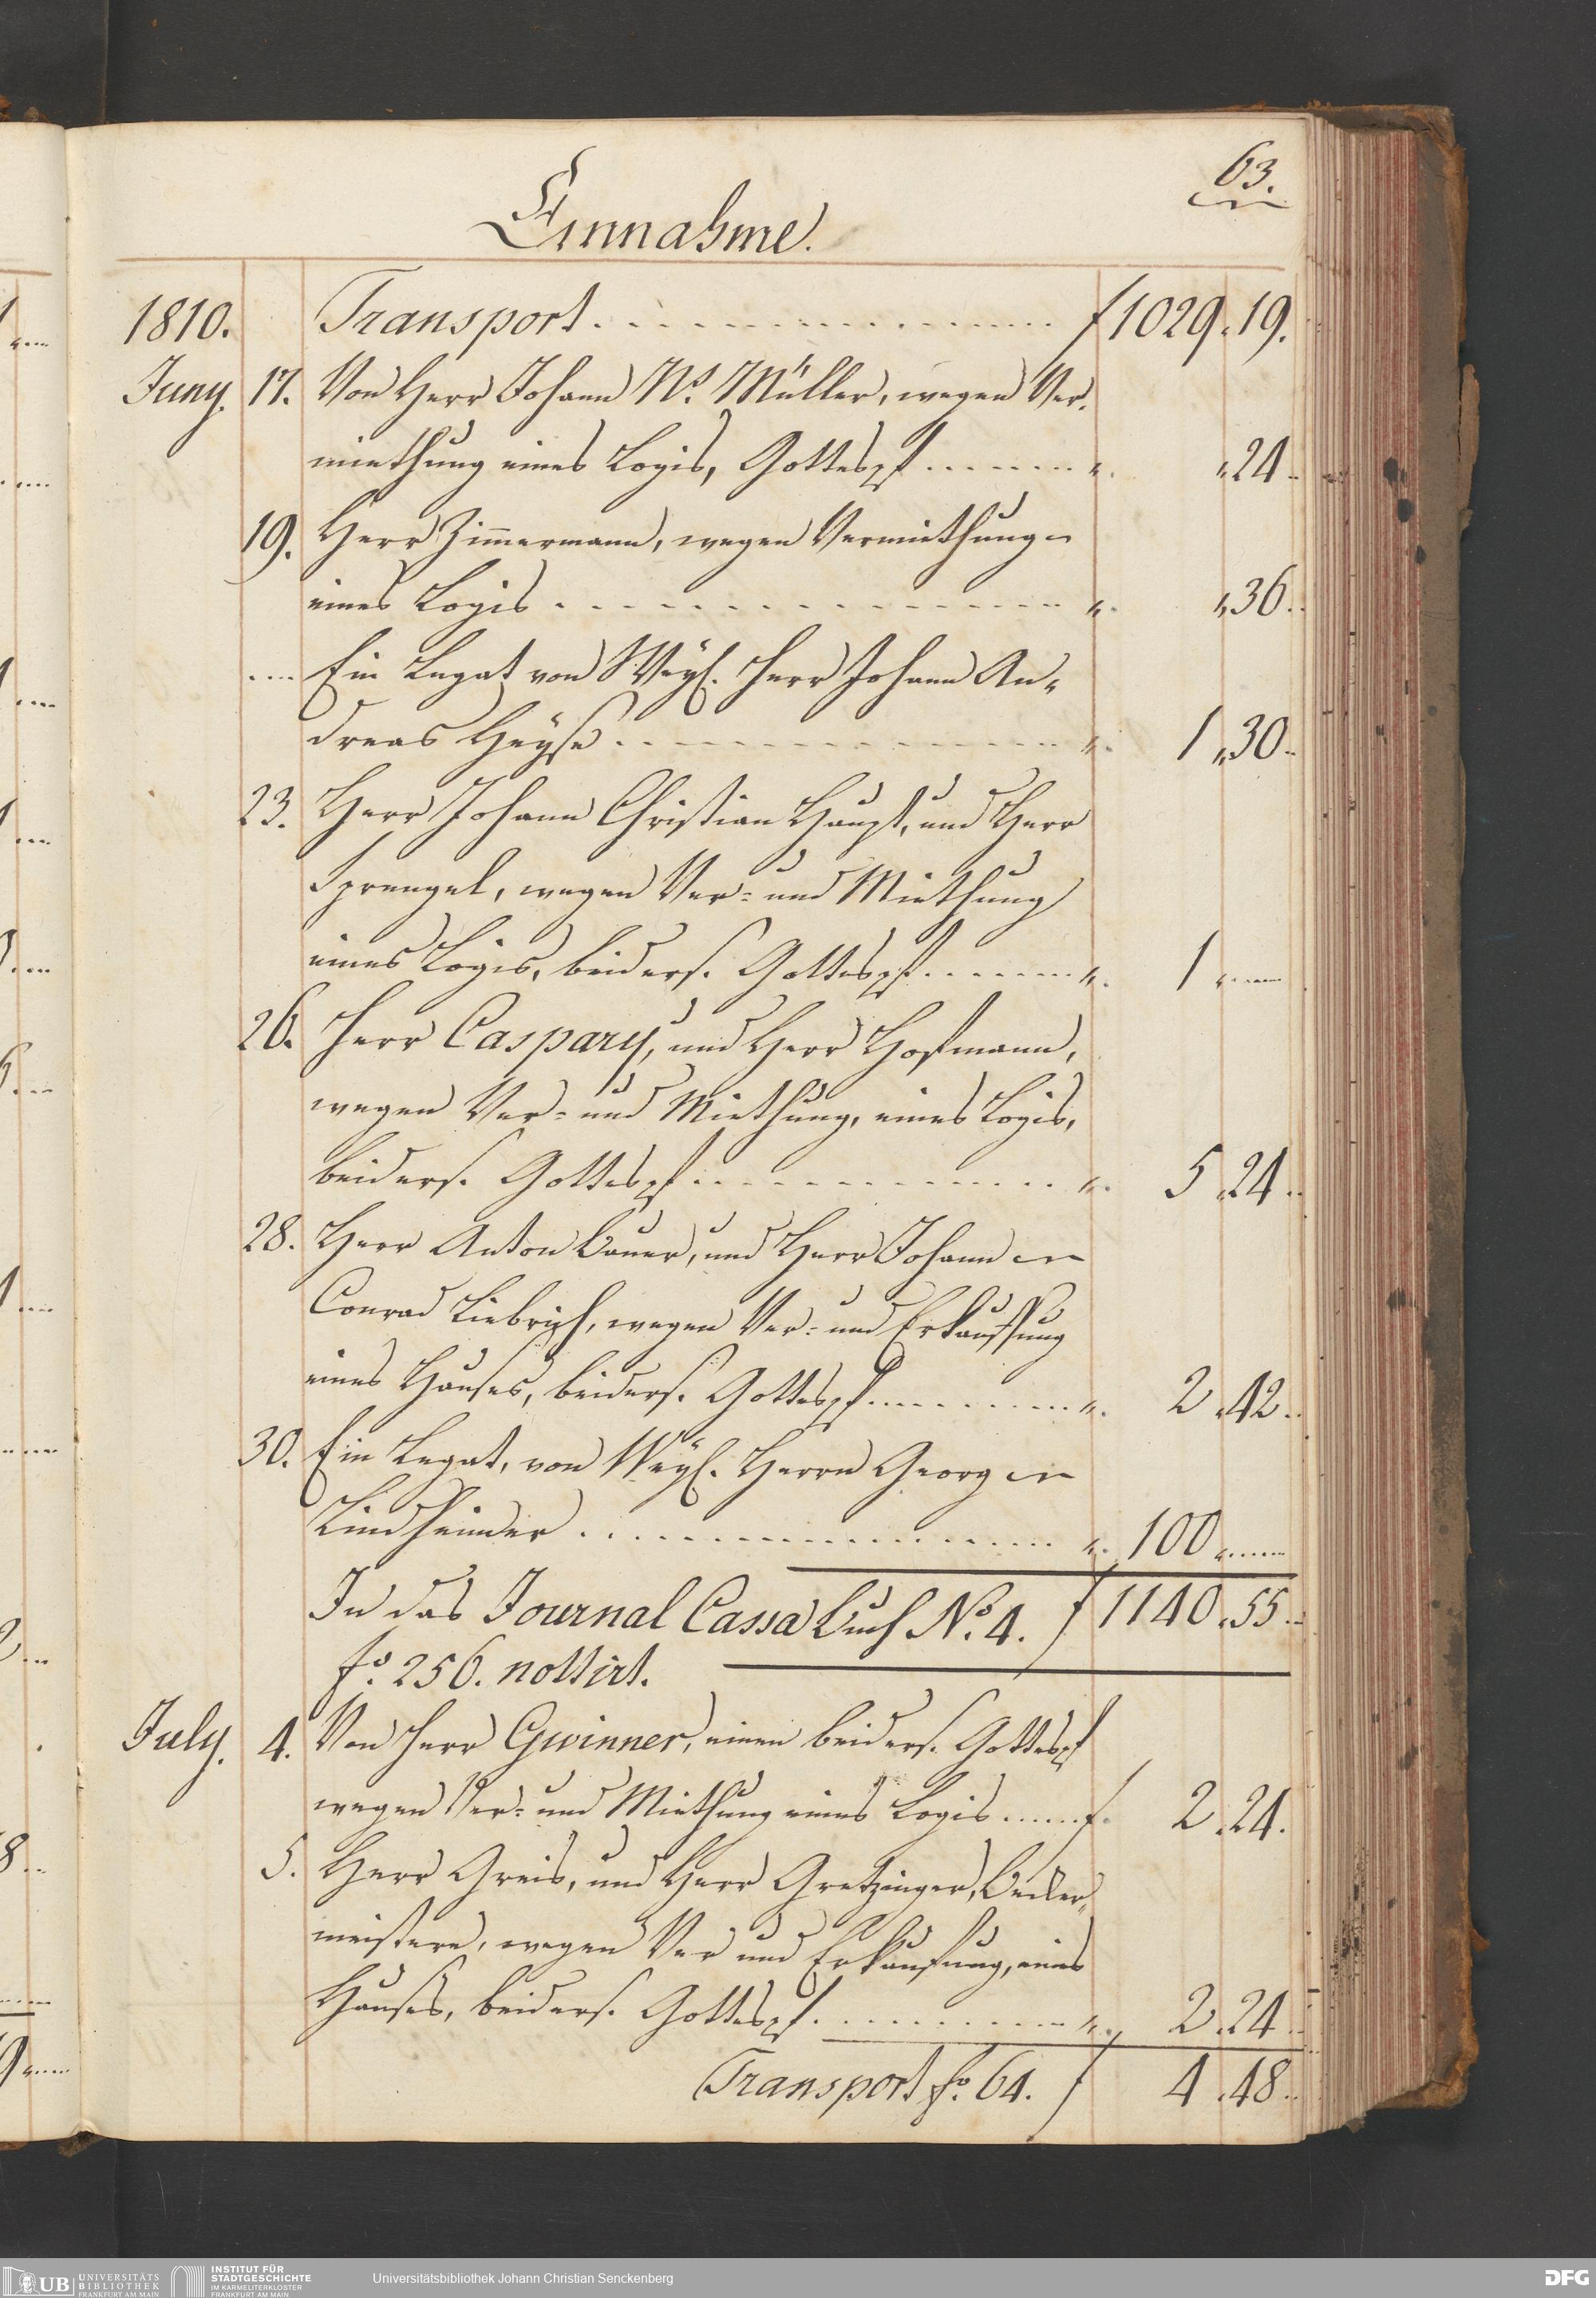 63.
Einnahme.
1810. Transport . . . . . . . . f 1029 „ 19.
Juny. 17. Von Herr Johann Ns. Müller, wegen Ver-
miethung eines Logis, Gottespf. . . . . . „ „ 24 ..
19. Herr Zimmermann, wegen Vermiethung
eines Logis . . . . . . . . „ „ 36 ..
.... Ein Legat von Weyl. Herr Johann An-
dreas Heyse . . . . . . . . „ 1 „ 30 ..
23. Herr Johann Christian Haupt, und Herr
Sprengel, wegen Ver- und Miethung
eines Logis, beiders. Gottespf. . . . . . „ 1 „ ....
26. Herr Caspary, und Herr Hofmann,
wegen Ver- und Miethung, eines Logis,
beiders. Gottespf. . . . . . . . „ 5 „ 24 ..
28. Herr Anton Bauer, und Herr Johann
Conrad Liebrich, wegen Ver- und Erkauffung
eines Hauses, beiders. Gottespf. . . . . . „ 2 „ 42 ..
30. Ein Legat, von Weyl. Herrn Georg
Lindheimer . . . . . . . . „ 100 „ ....
In das Journal Cassa Buch No. 4. f 1140 „ 55 ..
fo. 256. nottirt.
July. 4. Von Herr Gwinner, einen beiders. Gottespf
wegen Ver- und Miethung eines Logis . . . . f. 2 „ 24.
5. Herr Greis, und Herr Gretzinger,
meistern, wegen Ver und Erkaufung, eines
Hauses, beiders. Gottespf. . . . . . . „ 2 „ 24 ..
Transport fo. 64. f 4 „ 48 ..
UB UNIVERSITÄTS
BIBLIOTHEK
FRANKFURT AM MAIN
INSTITUT FÜR
STADTGESCHICHTE
IM KARMELITERKLOSTER
FRANKFURT AM MAIN
Universitätsbibliothek Johann Christian Senckenberg
DFG